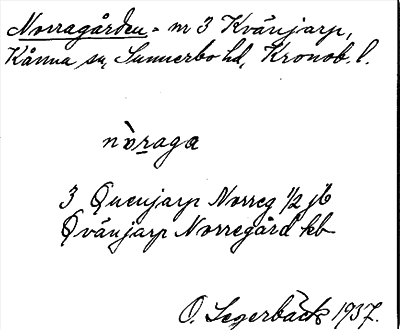 Norragården - nr 3 Kvänjarp,
Kånna sn, Sunnerbo hd, Kronob. l.
nòraga
3 Quenjarp Norreg 1/2 jb
Qvänjarp Norregård kb
O. Segerbäck 1937.